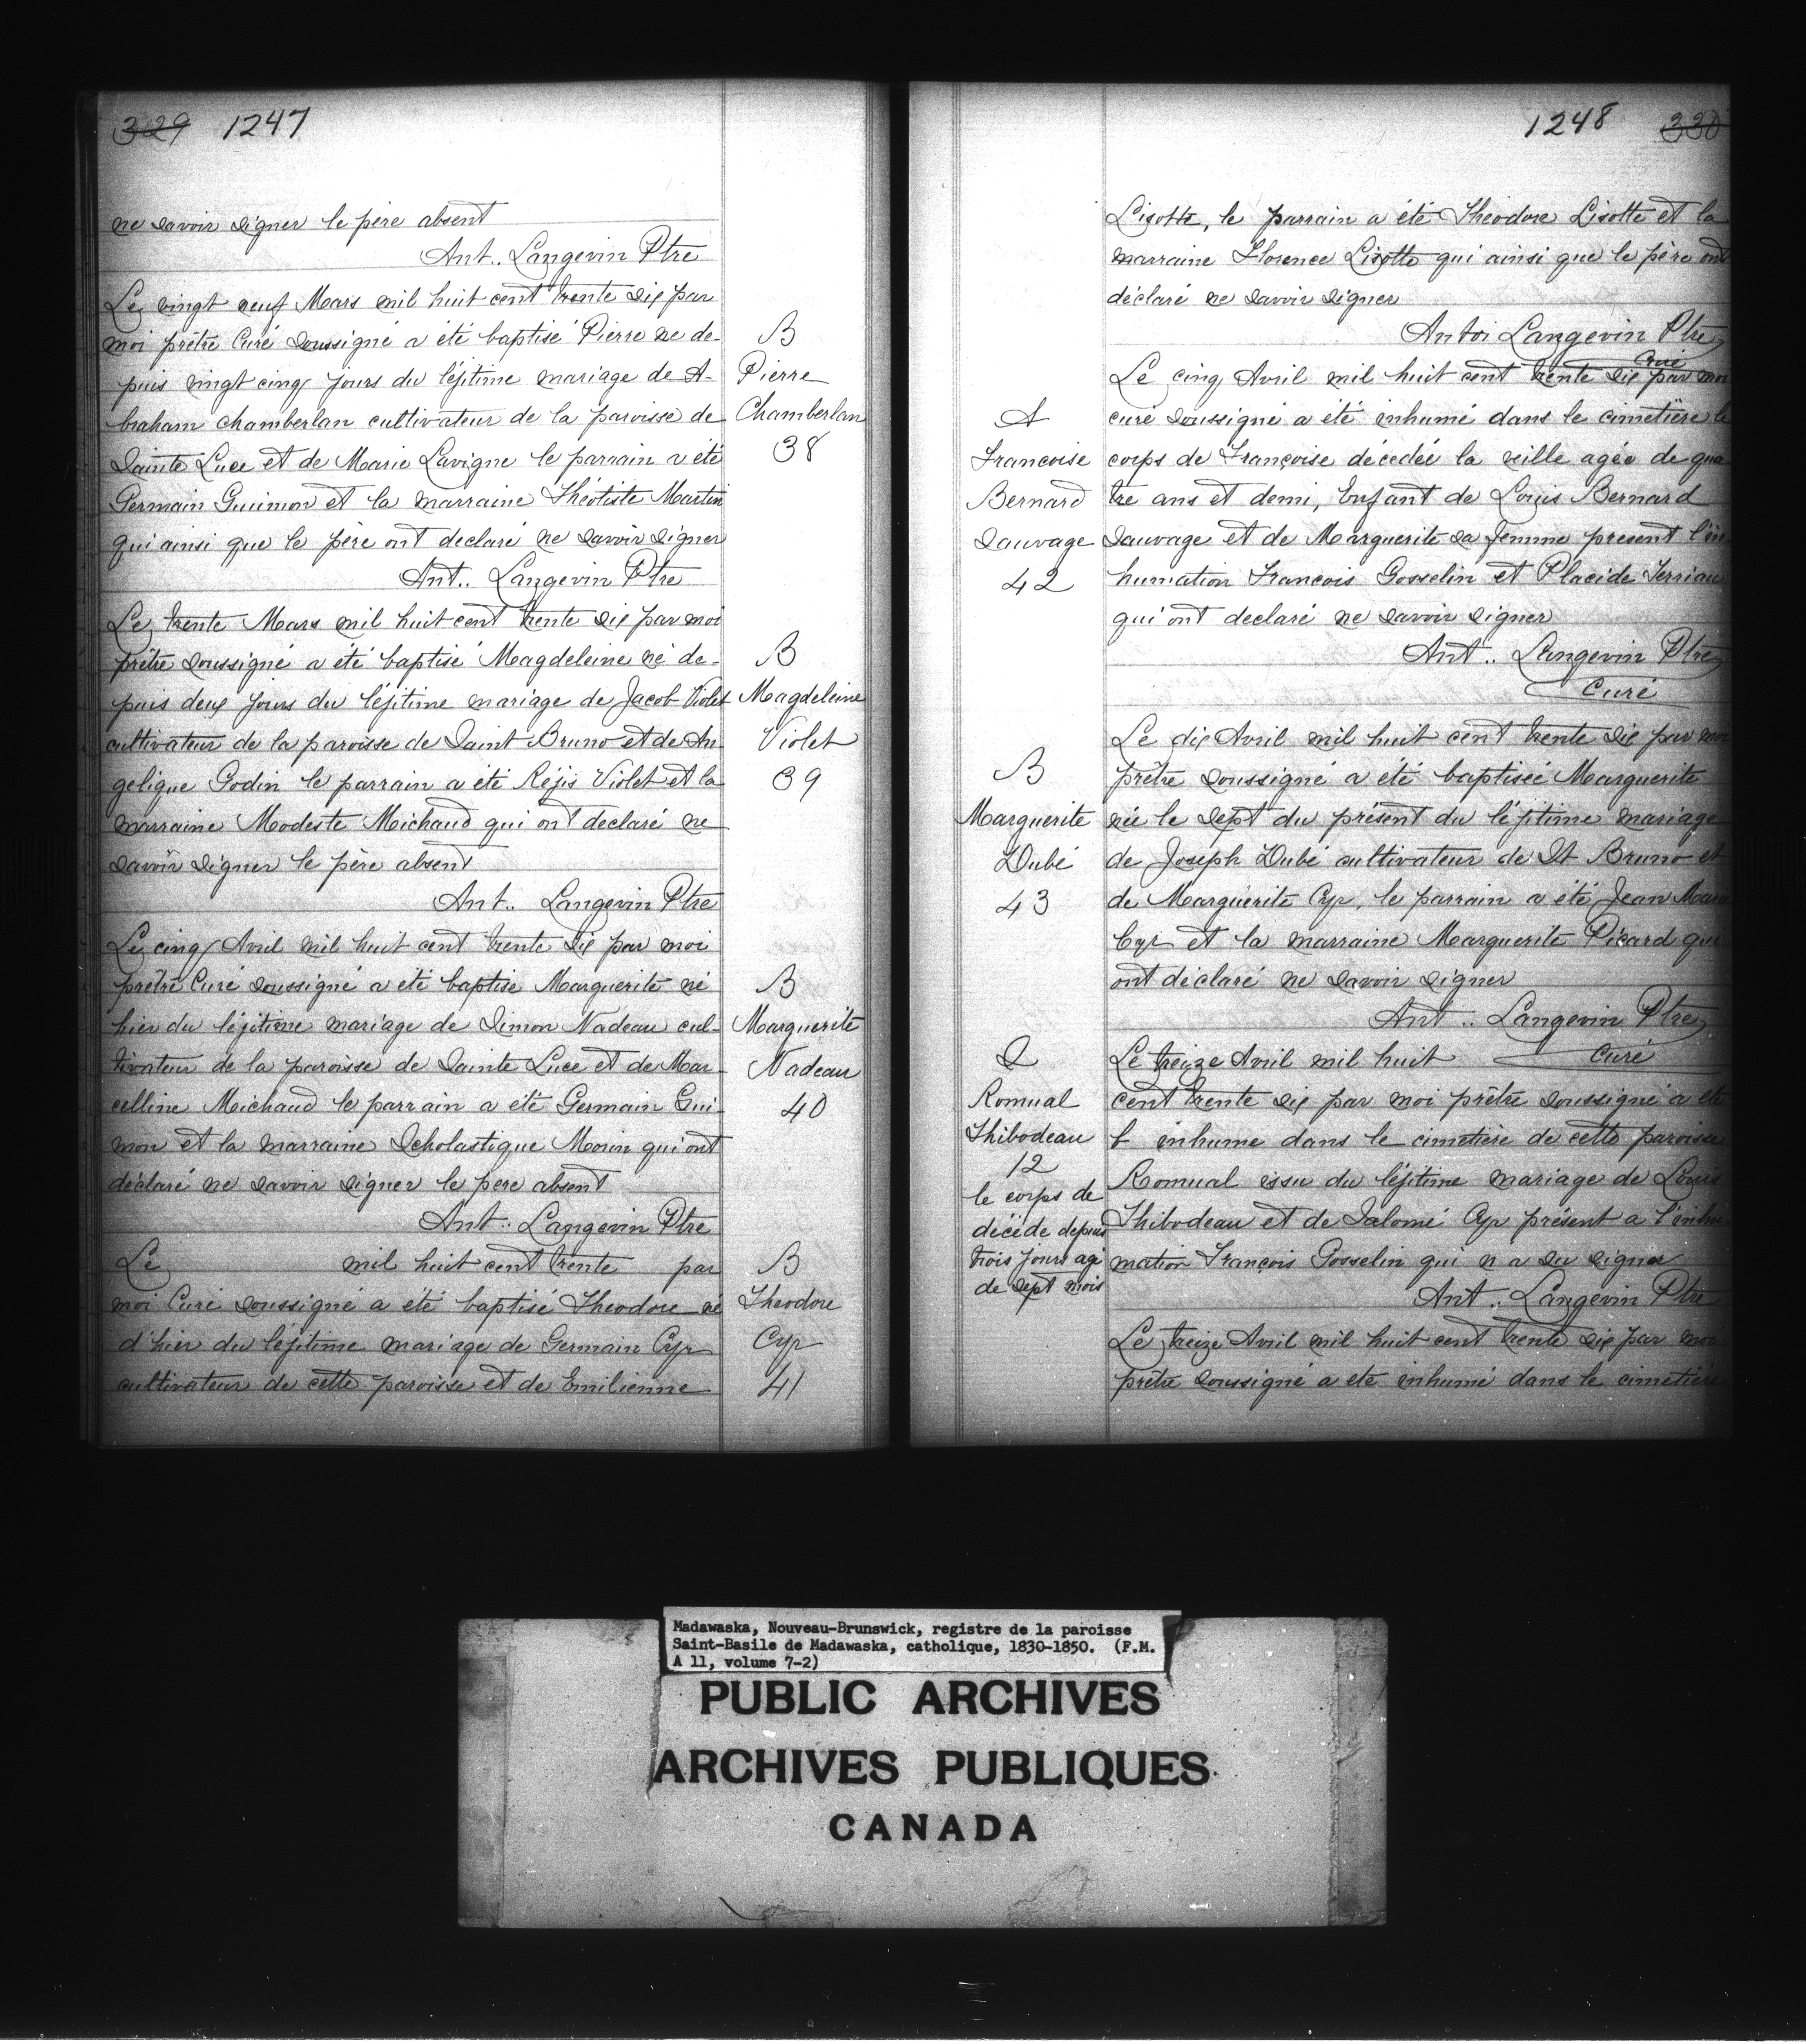 329 1247
ne savoir signer le père absent
Ant.. Langevin Ptre
Le vingt neuf Mars mil huit cent trente six par
moi prêtre Curé soussigné a été baptisé Pierre ne de-
puis vingt cinq jours du légitime mariage de A-
braham Chamberlan cultivateur de la paroisse de
Sainte Luce et de Marie Lavigne le parrain a été
Germain Guimon et la marraine Théotiste Martin
qui ainsi que le père ont declaré ne savoir signer
Ant.. Langevin Ptre
B
Pierre
Chamberlan
38
Le trente Mars mil huit cent trente six par moi
prêtre soussigné a été baptisé Magdeleine né de-
puis deux jours du légitime mariage de Jacob Violet
cultivateur de la paroisse de Saint Bruno et de An
gelique Godin le parrain a été Réjis Violet et la
marraine Modeste Michaud qui ont declaré ne
savoir signer le père absent
Ant.. Langevin Ptre
B
Magdeleine
Violet
39
Le cinq Avril mil huit cent trente six par moi
prêtre Curé soussigné a été baptise Marguerite né
hier du légitime mariage de Simon Nadeau cul-
tivateur de la paroisse de Sainte Luce et de Mar-
celline Michaud le parrain a été Germain Gui-
mon et la marraine Scholastique Morin qui ont
déclaré ne savoir signer le pere absent
Ant.. Langevin Ptre
B
Marguerite
Nadeau
40
Le mil huit cent trente par
moi Curé soussigné a été baptisé Theodore né
d'hier du légitime mariage de Germain Cyr
cultivateur de cette paroisse et de Emilienne
B
Theodore
Cyr
41
1248 330
Lisotte, le parrain a été Theodore Lisotte et la
marraine Florence Lisotte qui ainsi que le père ont
déclaré ne savoir signer
Antoi Langevin Ptre
Curé
Le cinq Avril mil huit cent trente six par moi
curé soussigné a été inhumé dans le cimetière le
corps de Françoise décedée la veille agée de qua
tre ans et demi, Enfant de Louis Bernard
Sauvage et de Marguerite sa femme present l'in
humation Francois Gosselin et Placide Terriau
qui ont declaré ne savoir signer
Ant.. Langevin Ptre
Curé
Francoise
Bernard
Sauvage
42
Le dix Avril mil huit cent trente six par moi
prêtre soussigné a été baptiseé Marguerite
née le sept du présent du légitime mariage
de Joseph Dubé cultivateur de St Bruno et
de Marguerite Cyr, le parrain a été Jean Marie
Cyr et la marraine Marguerite Picard qui
ont déclaré ne savoir signer
Ant.. Langevin Ptre
Curé
B
Marguerite
Dubé
43
Le treize Avril mil huit
cent trente six par moi prêtre soussigné a été
inhume dans le cimetière de cette paroisse
Romual issu du légitime mariage de Louis
Thibodeau et de Salomé Cyr présent a l'inhu-
mation François Gosselin qui n a su signer
Ant.. Langevin Ptre
S
Romual
Thibodeau
12
le corps de
décéde depuis
trois jours agé
de sept mois
Le treize Avril mil huit cent trente six par moi
prêtre soussigné a eté inhumé dans le cimetière
Madawaska, Nouveau-Brunswick, registre de la paroisse
Saint-Basile de Madawaska, catholique, 1830-1850. (F.M.
A 11, volume 7-2)
PUBLIC ARCHIVES
ARCHIVES PUBLIQUES
CANADA